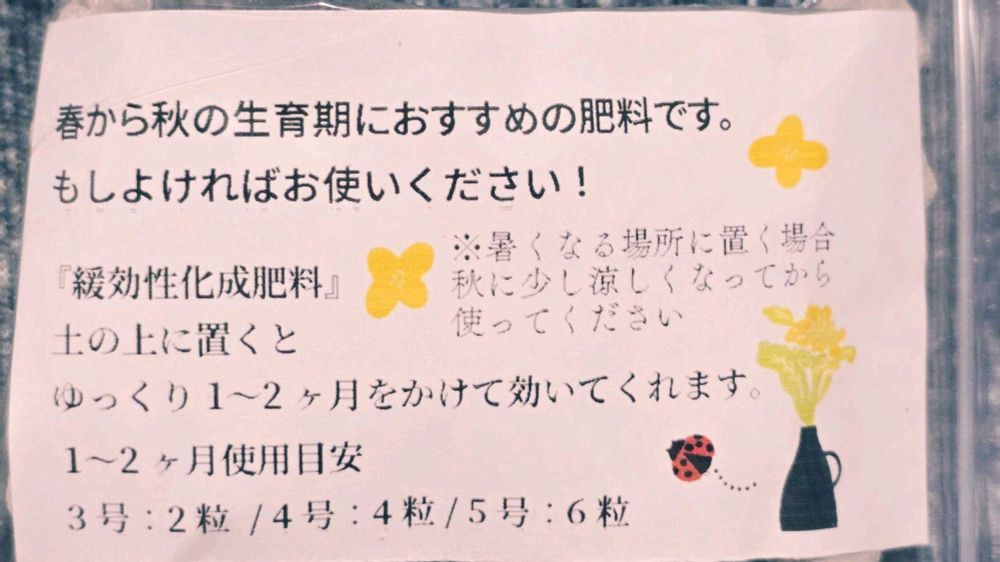 春から秋の生育期におすすめの肥料です。
もしよければお使いください！
※暑くなる場所に置く場合
秋に少し涼しくなってから
使ってください
『緩効性化成肥料』
土の上に置くと
ゆっくり1〜2ヶ月をかけて効いてくれます。
1〜2ヶ月使用目安
3号：2粒 /4号：4粒/5号：6粒